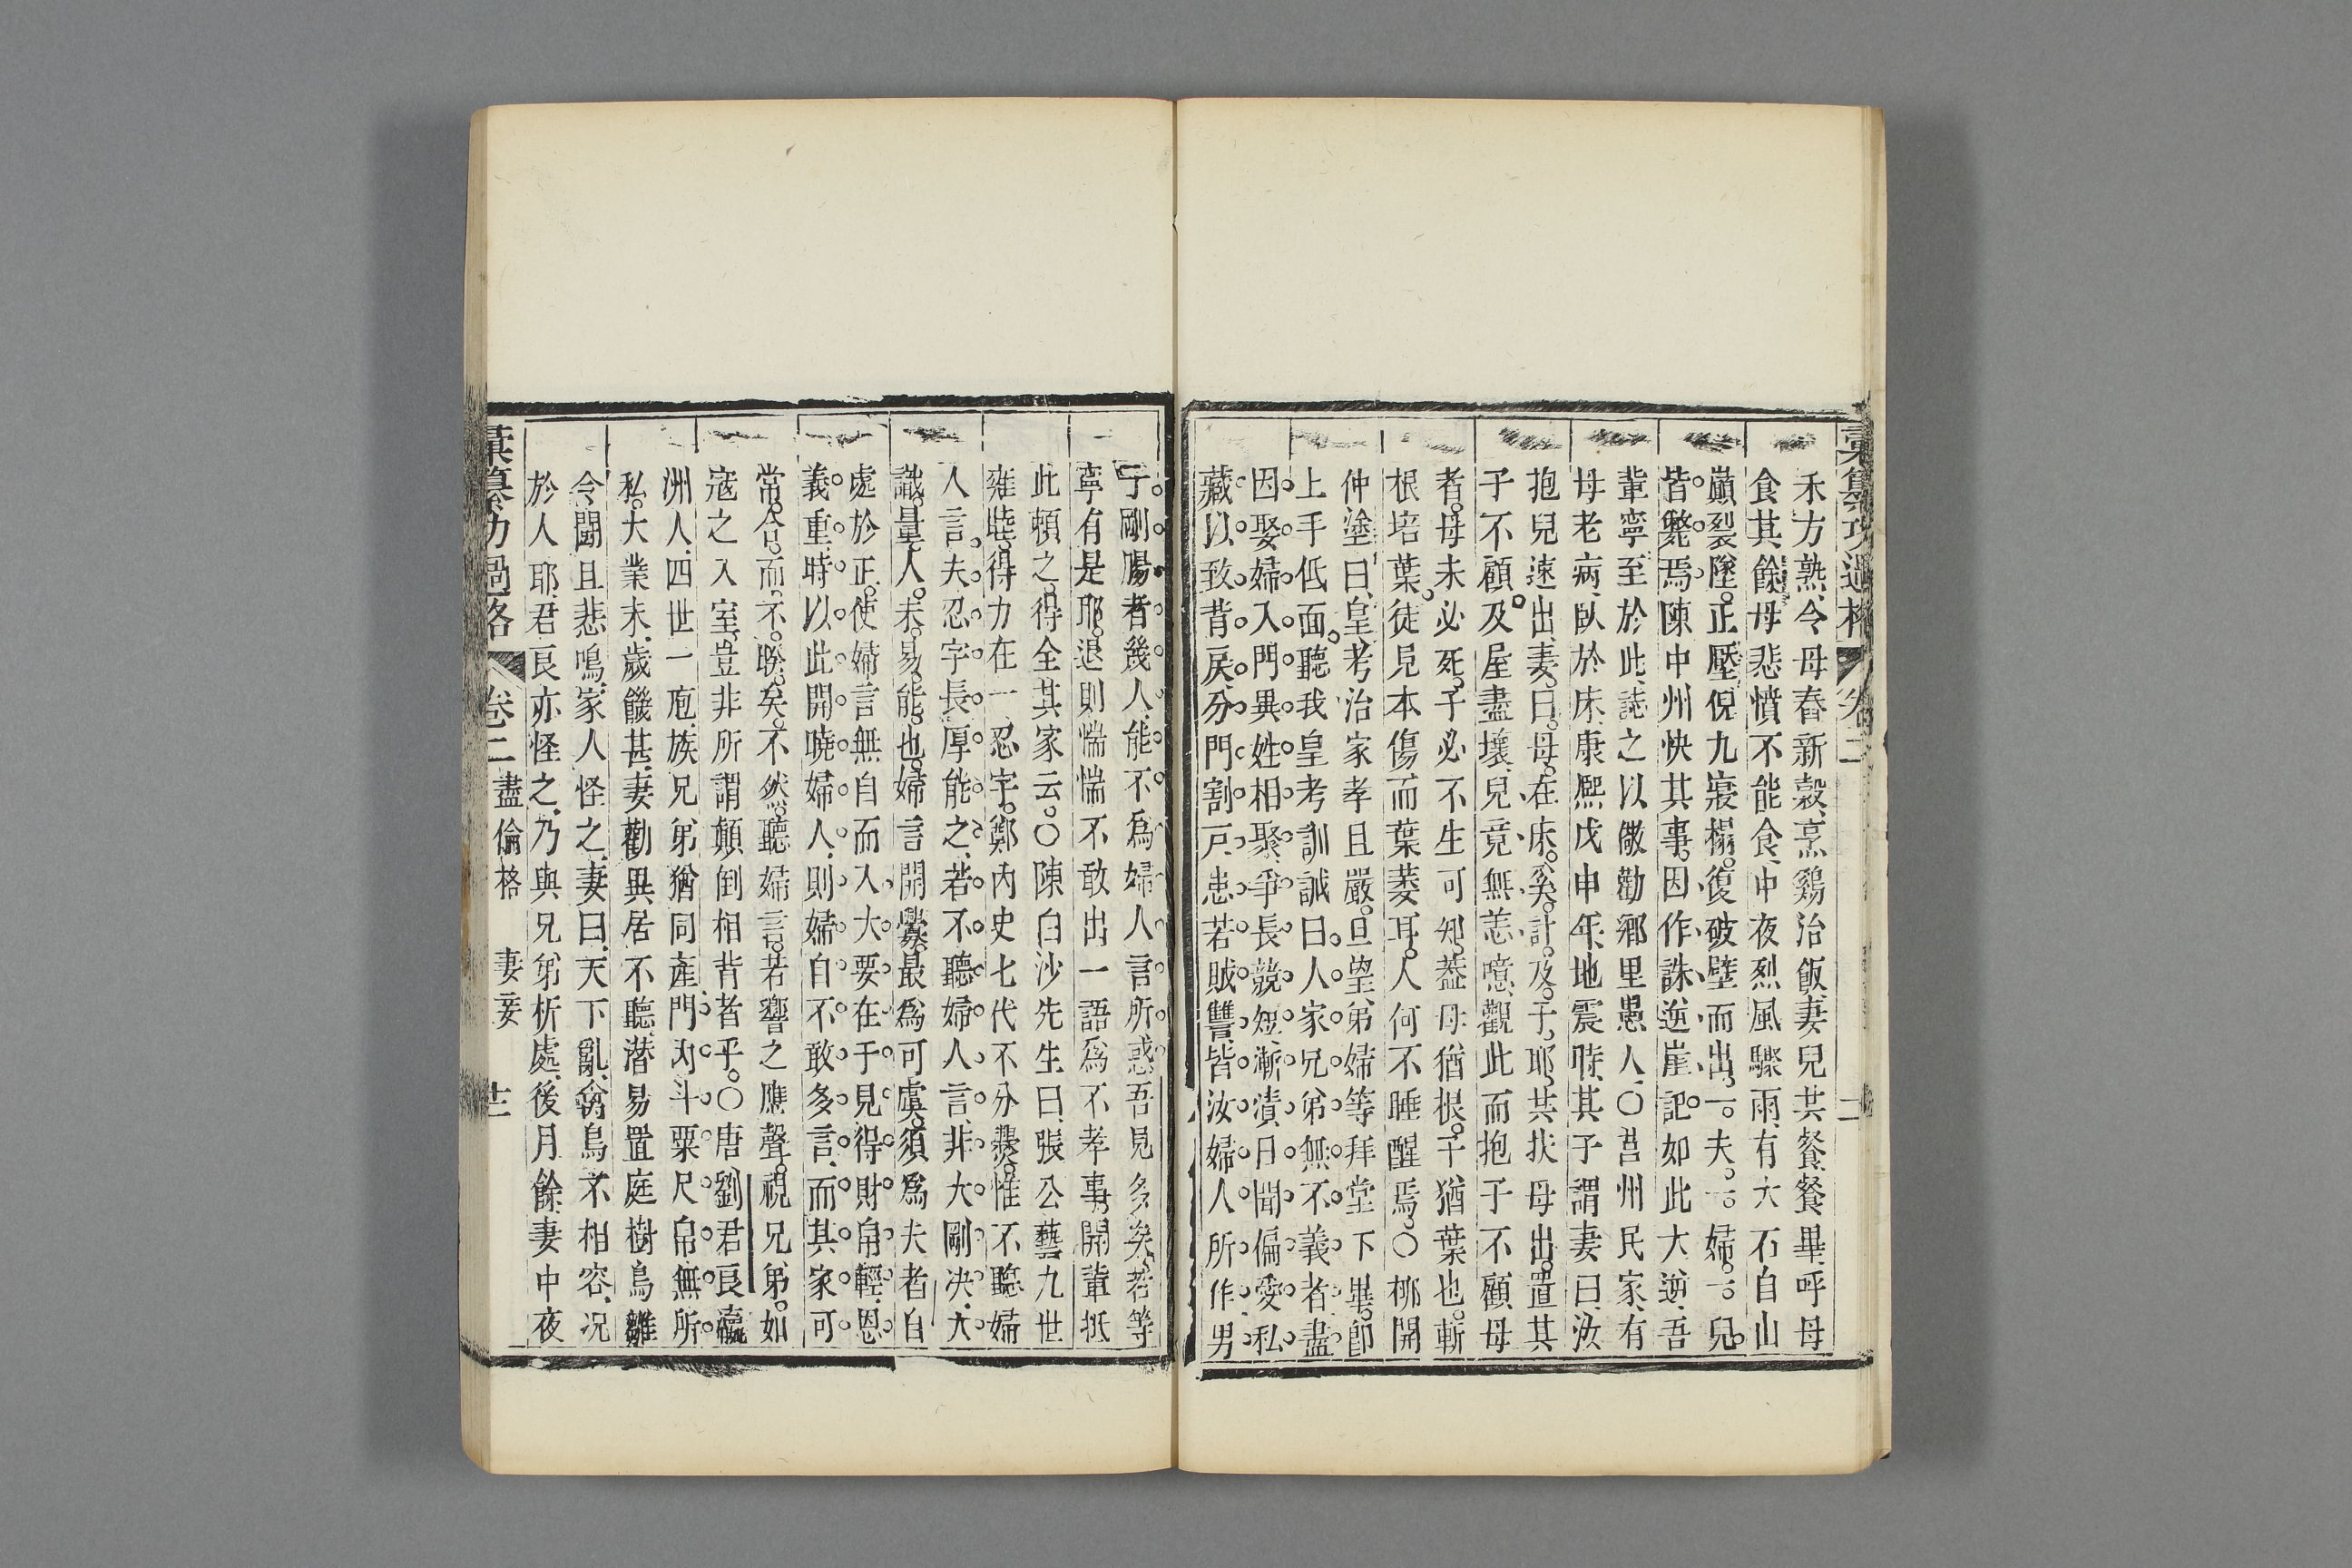 彙纂功過格 卷二
禾方熟、令母舂新穀、烹鷄治飯、妻兒共餐、餐畢、呼母
食其餘、母悲憤不能食、中夜烈風驟雨、有大石自山
巔裂墜。正壓倪九寢榻。復破壁而出。一夫。一婦。一兒。
皆斃焉。陳中州快其事。因作誅逆崖記。如此大逆、吾
輩寧至於此、誌之以儆勸鄉里愚人、〇莒州民家、有
母老病、臥於床、康熙戊申年、地震時、其子謂妻曰、汝
抱兒速出、妻曰。母。在床。奚。計。及。子。耶。共扶母出。置其
子不顧。及屋盡壞、兒竟無恙、噫、觀此而抱子不顧母
者。母未必死。子必不生可知。葢母猶根。子猶葉也。斬
根培葉。徒見本傷而葉萎耳。人何不睡醒焉。〇栁開
仲塗曰、皇考治家孝且嚴。旦望弟婦等拜堂下畢。卽
上手低面。聽我皇考訓誡曰。人家兄弟無不義者。盡
因娶婦入門。異姓相聚。爭長競短。漸漬日聞。偏愛私
藏。以致背戾。分門割戸。患若賊讐。皆汝婦人所作。男
子。剛腸者幾人。能不爲婦人言所惑。吾見多矣。若等
寧有是耶。退則惴惴不敢出一語爲不孝事。開輩抵
此頼之。得全其家云。〇陳白沙先生曰、張公藝九世
雍睦。得力在一忍字。鄭內史七代不分爨。惟不聽婦
人言。夫忍字長厚能之、若不聽婦人言、非大剛決、大
識。量。人。未。易。能。也。婦言開釁。最爲可虞。須爲夫者自
處於正。使婦言無自而入、大要在于見得財帛輕、恩
義重、時以此開曉婦人、則婦自不敢多言、而其家可
常。合。而。不。暌。矣。不然、聽婦言。若響之應聲。視兄弟。如
寇之入室、豈非所謂顛倒相背者乎。〇唐劉君良、瀛
洲人、四世一庖、族兄弟猶同產、門內斗粟尺帛無所
私。大業末、歲饑甚、妻勸異居、不聽、潜易置庭樹鳥雛
令鬬且悲鳴、家人怪之、妻曰、天下亂、禽鳥不相容、况
於人耶、君良亦怪之、乃與兄弟析處、後月餘、妻中夜
彙纂功過格 卷二 盡倫格 妻妾